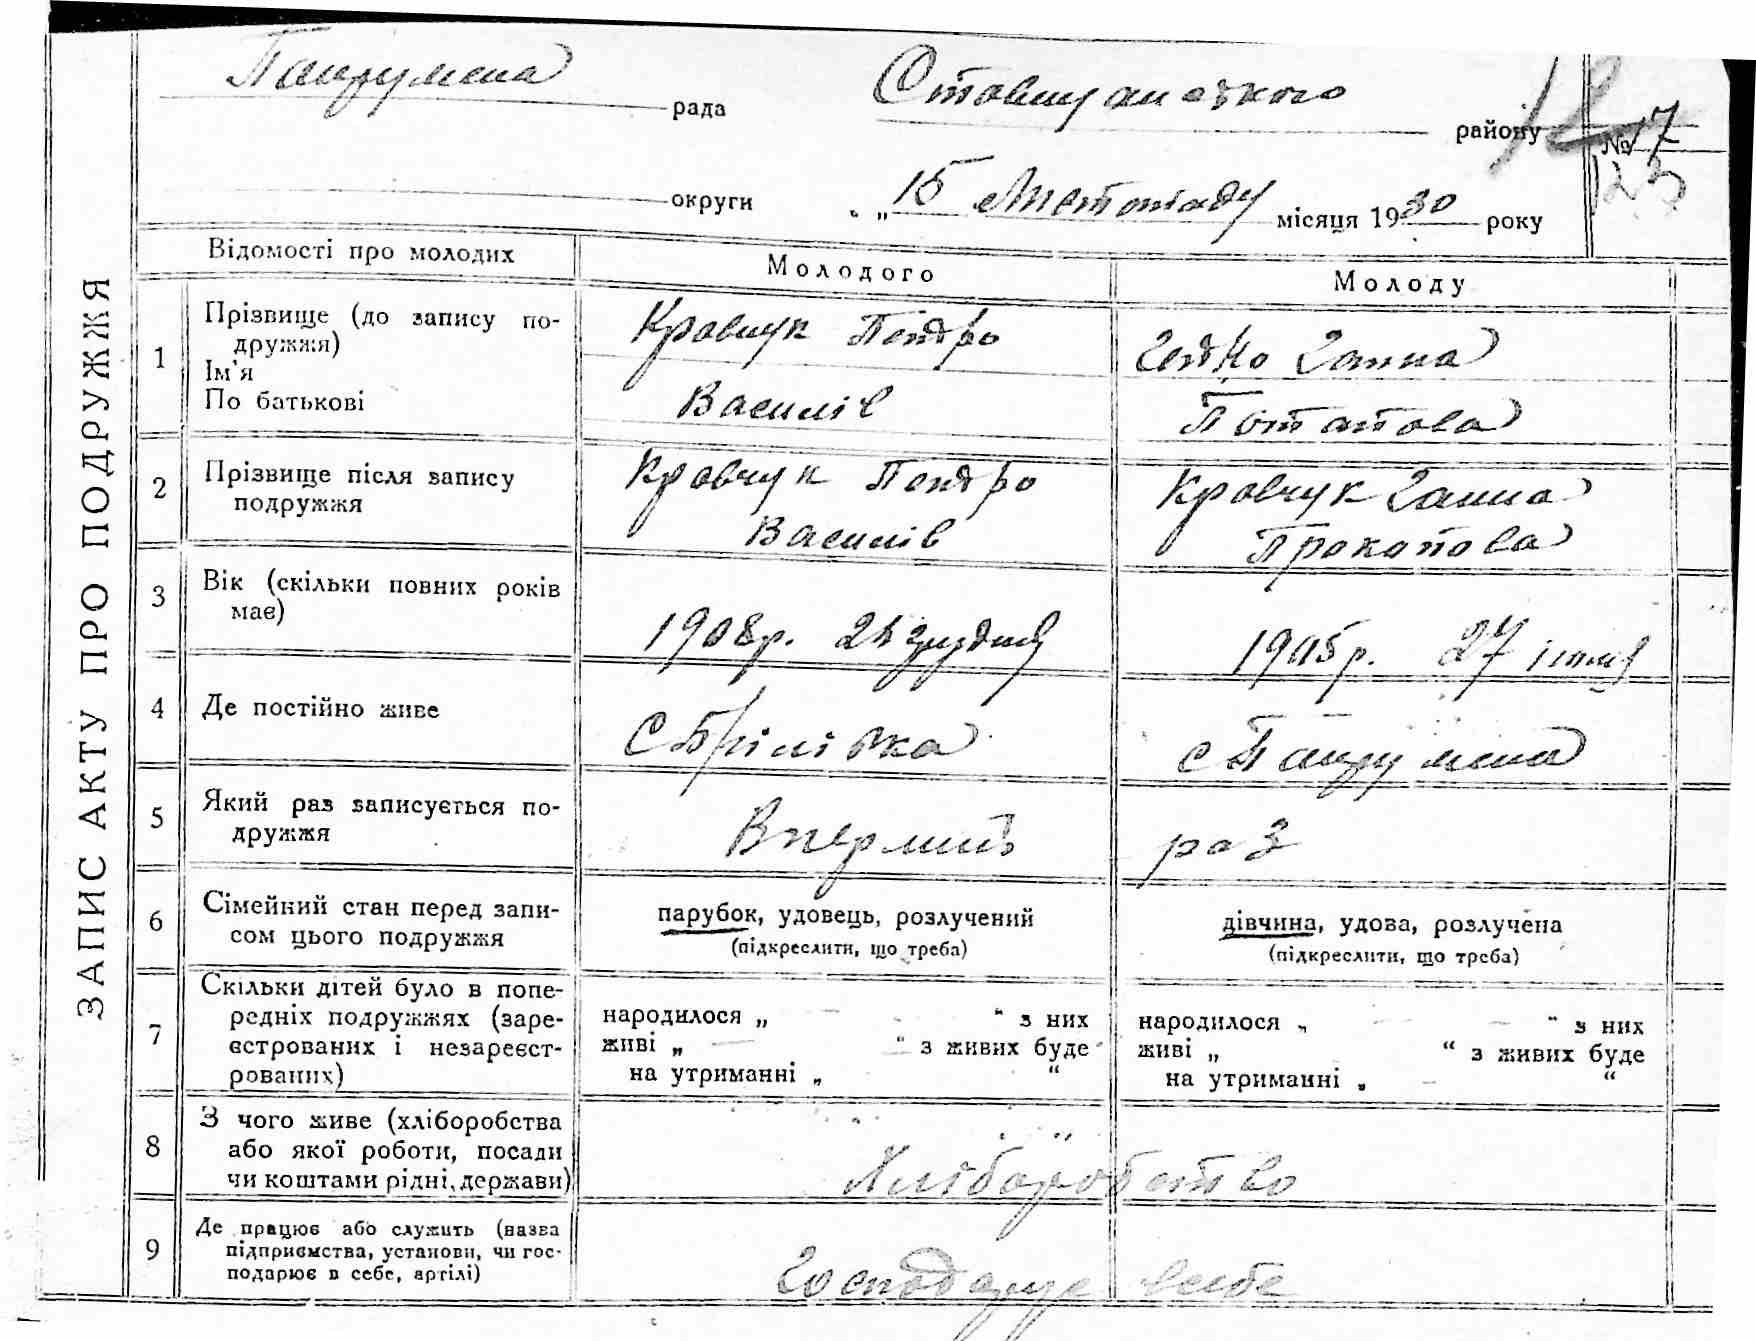 рада Ставищанського району № 17
12
123
округи „15 Листопаду місяця 1930 року
ЗАПИС АКТУ ПРО ПОДРУЖЖЯ
Відомості про молодих Молодого Молоду
1 Прізвище (до запису по-
дружжя)
Ім'я
По батькові
Кравчук Петро
Василів
Ганна
Потапова
2 Прізвище після запису
подружжя
Кравчук Петро
Василів
Кравчук Ганна
Прокопова
3 Вік (скільки повних років
має)
1908р. грудня
1905р. 27
4 Де постійно живе
С Брілівка
5 Який раз записується по-
дружжя
Вперший раз
6 Сімейний стан перед запи-
сом цього подружжя
парубок, удовець, розлучений
(підкреслити, що треба)
дівчина, удова, розлучена
(підкреслити, що треба)
7 Скільки дітей було в попе-
редніх подружжях (заре-
єстрованих і незареєст-
рованих)
народилося „ — “ з них
живі „ — “ з живих буде
на утриманні „ “
народилося „ — “ з них
живі „ “ з живих буде
на утриманні „ — “
8 З чого живе (хліборобства
або якої роботи, посади
чи коштами рідні, держави)
Хліборобство
9 Де працює або служить (назва
підприємства, установи, чи гос-
подарює в себе, артілі)
Господарує всебе